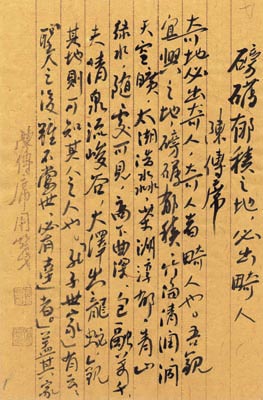 磅礴郁积之地,必出畸人
陳傳席
奇地必出奇人,奇人者畸人也。吾观
宜興之地磅礴郁積,竹海清潤,洞
天空曠,太湖浩淼,
绿水随處可見,高下曲深,包融萬千,
夫清泉流峻谷,大澤出龍蛇,觀
其地則可知其人之人也。孔子世家」有云:
聖人之後,雖不當世,必有達」者」蓋其家
陳傳席用箋